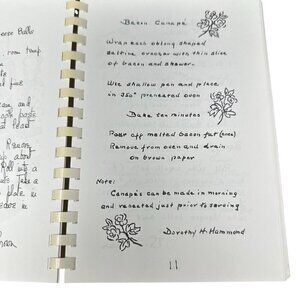 ese Balls
room temp.
and
Bacon Canapé
Wrap each oblong shaped
saltine cracker with thin slice
of bacon and skewer.
Use shallow pan and place
in 350° preheated oven
Bake ten minutes
Pour off melted bacon fat (once)
Remove from oven and drain
on brown paper
Note:
Canapé's can be made in morning
and reheated just prior to serving
Dorothy H. Hammond
11